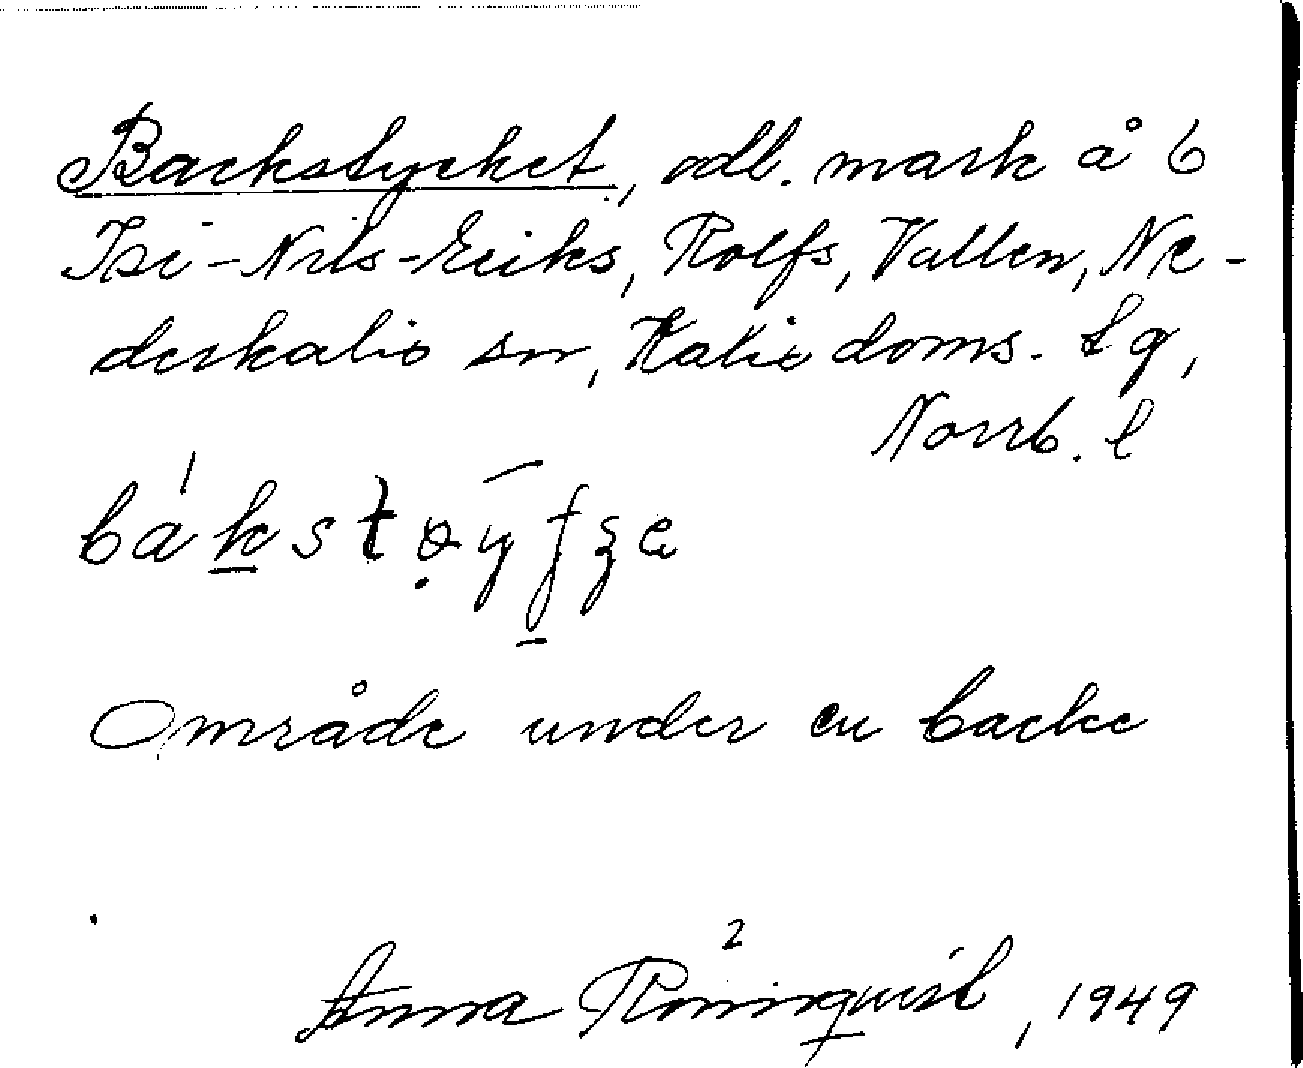 Backstycket, odl. mark å 6
Isi-Nils-Eriks, Rolfs, Vallen, Ne-
derkalix sn, Kalix doms. lg,
Norrb. l
Område under en backe
2
Anna Rönnquist, 1949